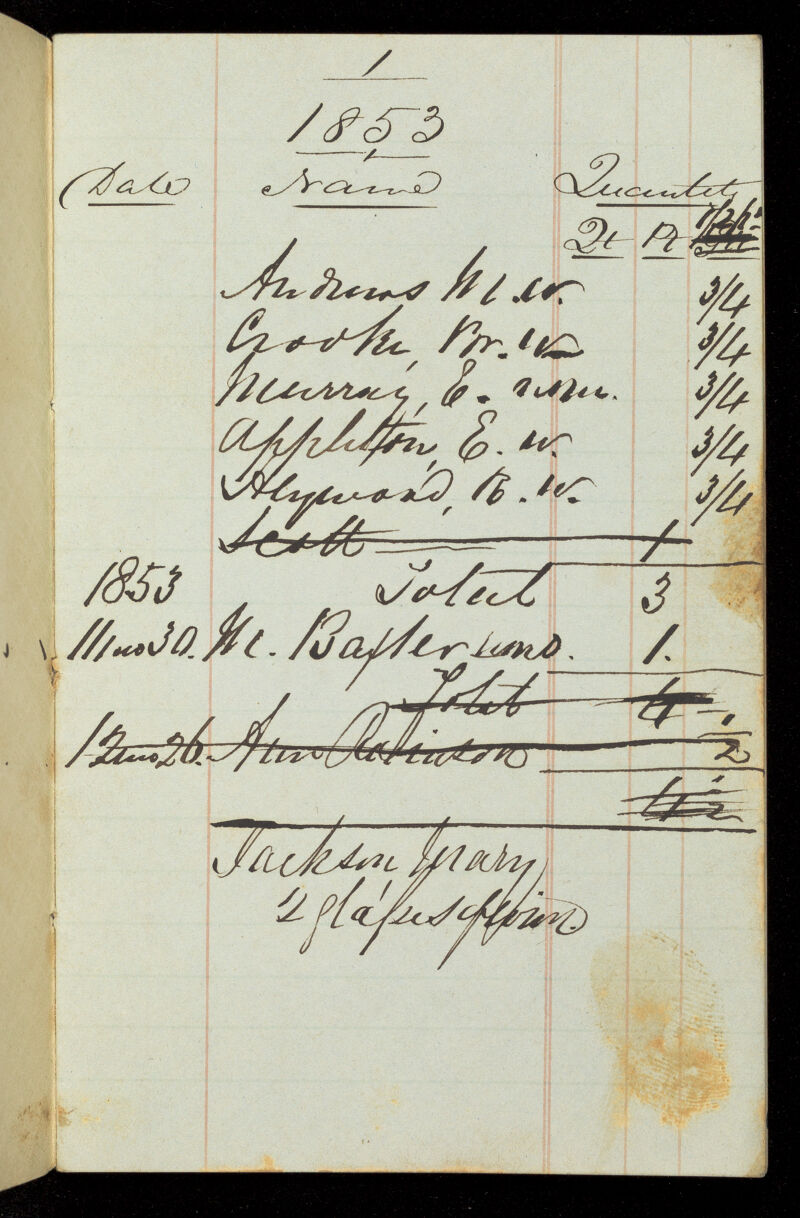 1
1853
Date Name Quantity
Qt Pt 1/2 Pt
Andrews M. W. 3/4
Crooke, W. 3/4
Murray, E. 3/4
Appleton, E. W. 3/4
Heywood, R. W. 3/4
Scott 1
1853 Total 3
11 mo 30. M. Baxter 1.
Total 4
12 mo 26. Ann Robinson 1/2
4 1/2
Jackson, Mary
2 glasses of wine.